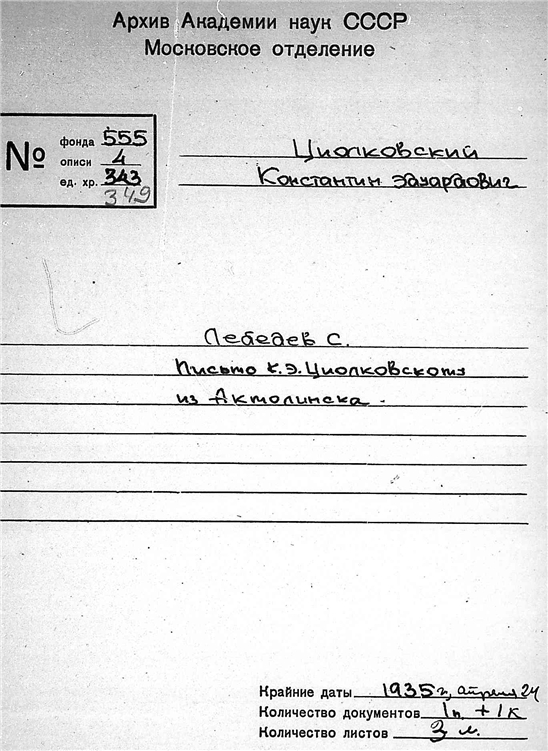 Архив Академии наук СССР
Московское отделение
№
фонда 555
описи 4
ед. хр. 343
349
Циолковский
Константин Эдуардович
Лебедев С.
Письмо К.Э.Циолковскому
из Актолинска.
Крайние даты 1935 г, апреля 24
Количество документов 1п. + 1к
Количество листов 3 л.